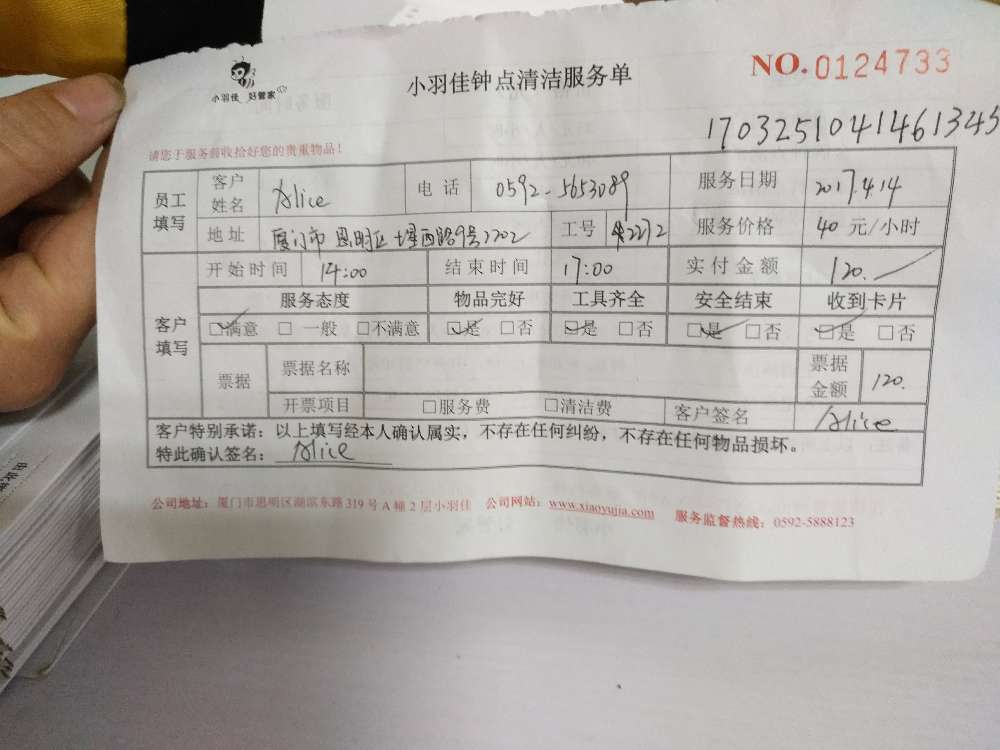 小羽佳 好管家
小羽佳钟点清洁服务单
NO.0124733
1703251041461345
请您于服务前收拾好您的贵重物品!
员工填写 客户姓名 Alice 电话 0592-5653089 服务日期 2017.4.14
地址 厦门市 思明区 西路9号2202 工号 服务价格 40 元/小时
客户填写 开始时间 14:00 结束时间 17:00 实付金额 120.
服务态度 物品完好 工具齐全 安全结束 收到卡片
☑满意 □一般 □不满意 ☑是 □否 ☑是 □否 ☑是 □否 ☑是 □否
票据 票据名称 票据金额 120.
开票项目 □服务费 □清洁费 客户签名 Alice
客户特别承诺:以上填写经本人确认属实,不存在任何纠纷,不存在任何物品损坏。
特此确认签名: Alice
公司地址:厦门市思明区湖滨东路319号A幢2层小羽佳 公司网站:www.xiaoyujia.com 服务监督热线:0592-5888123